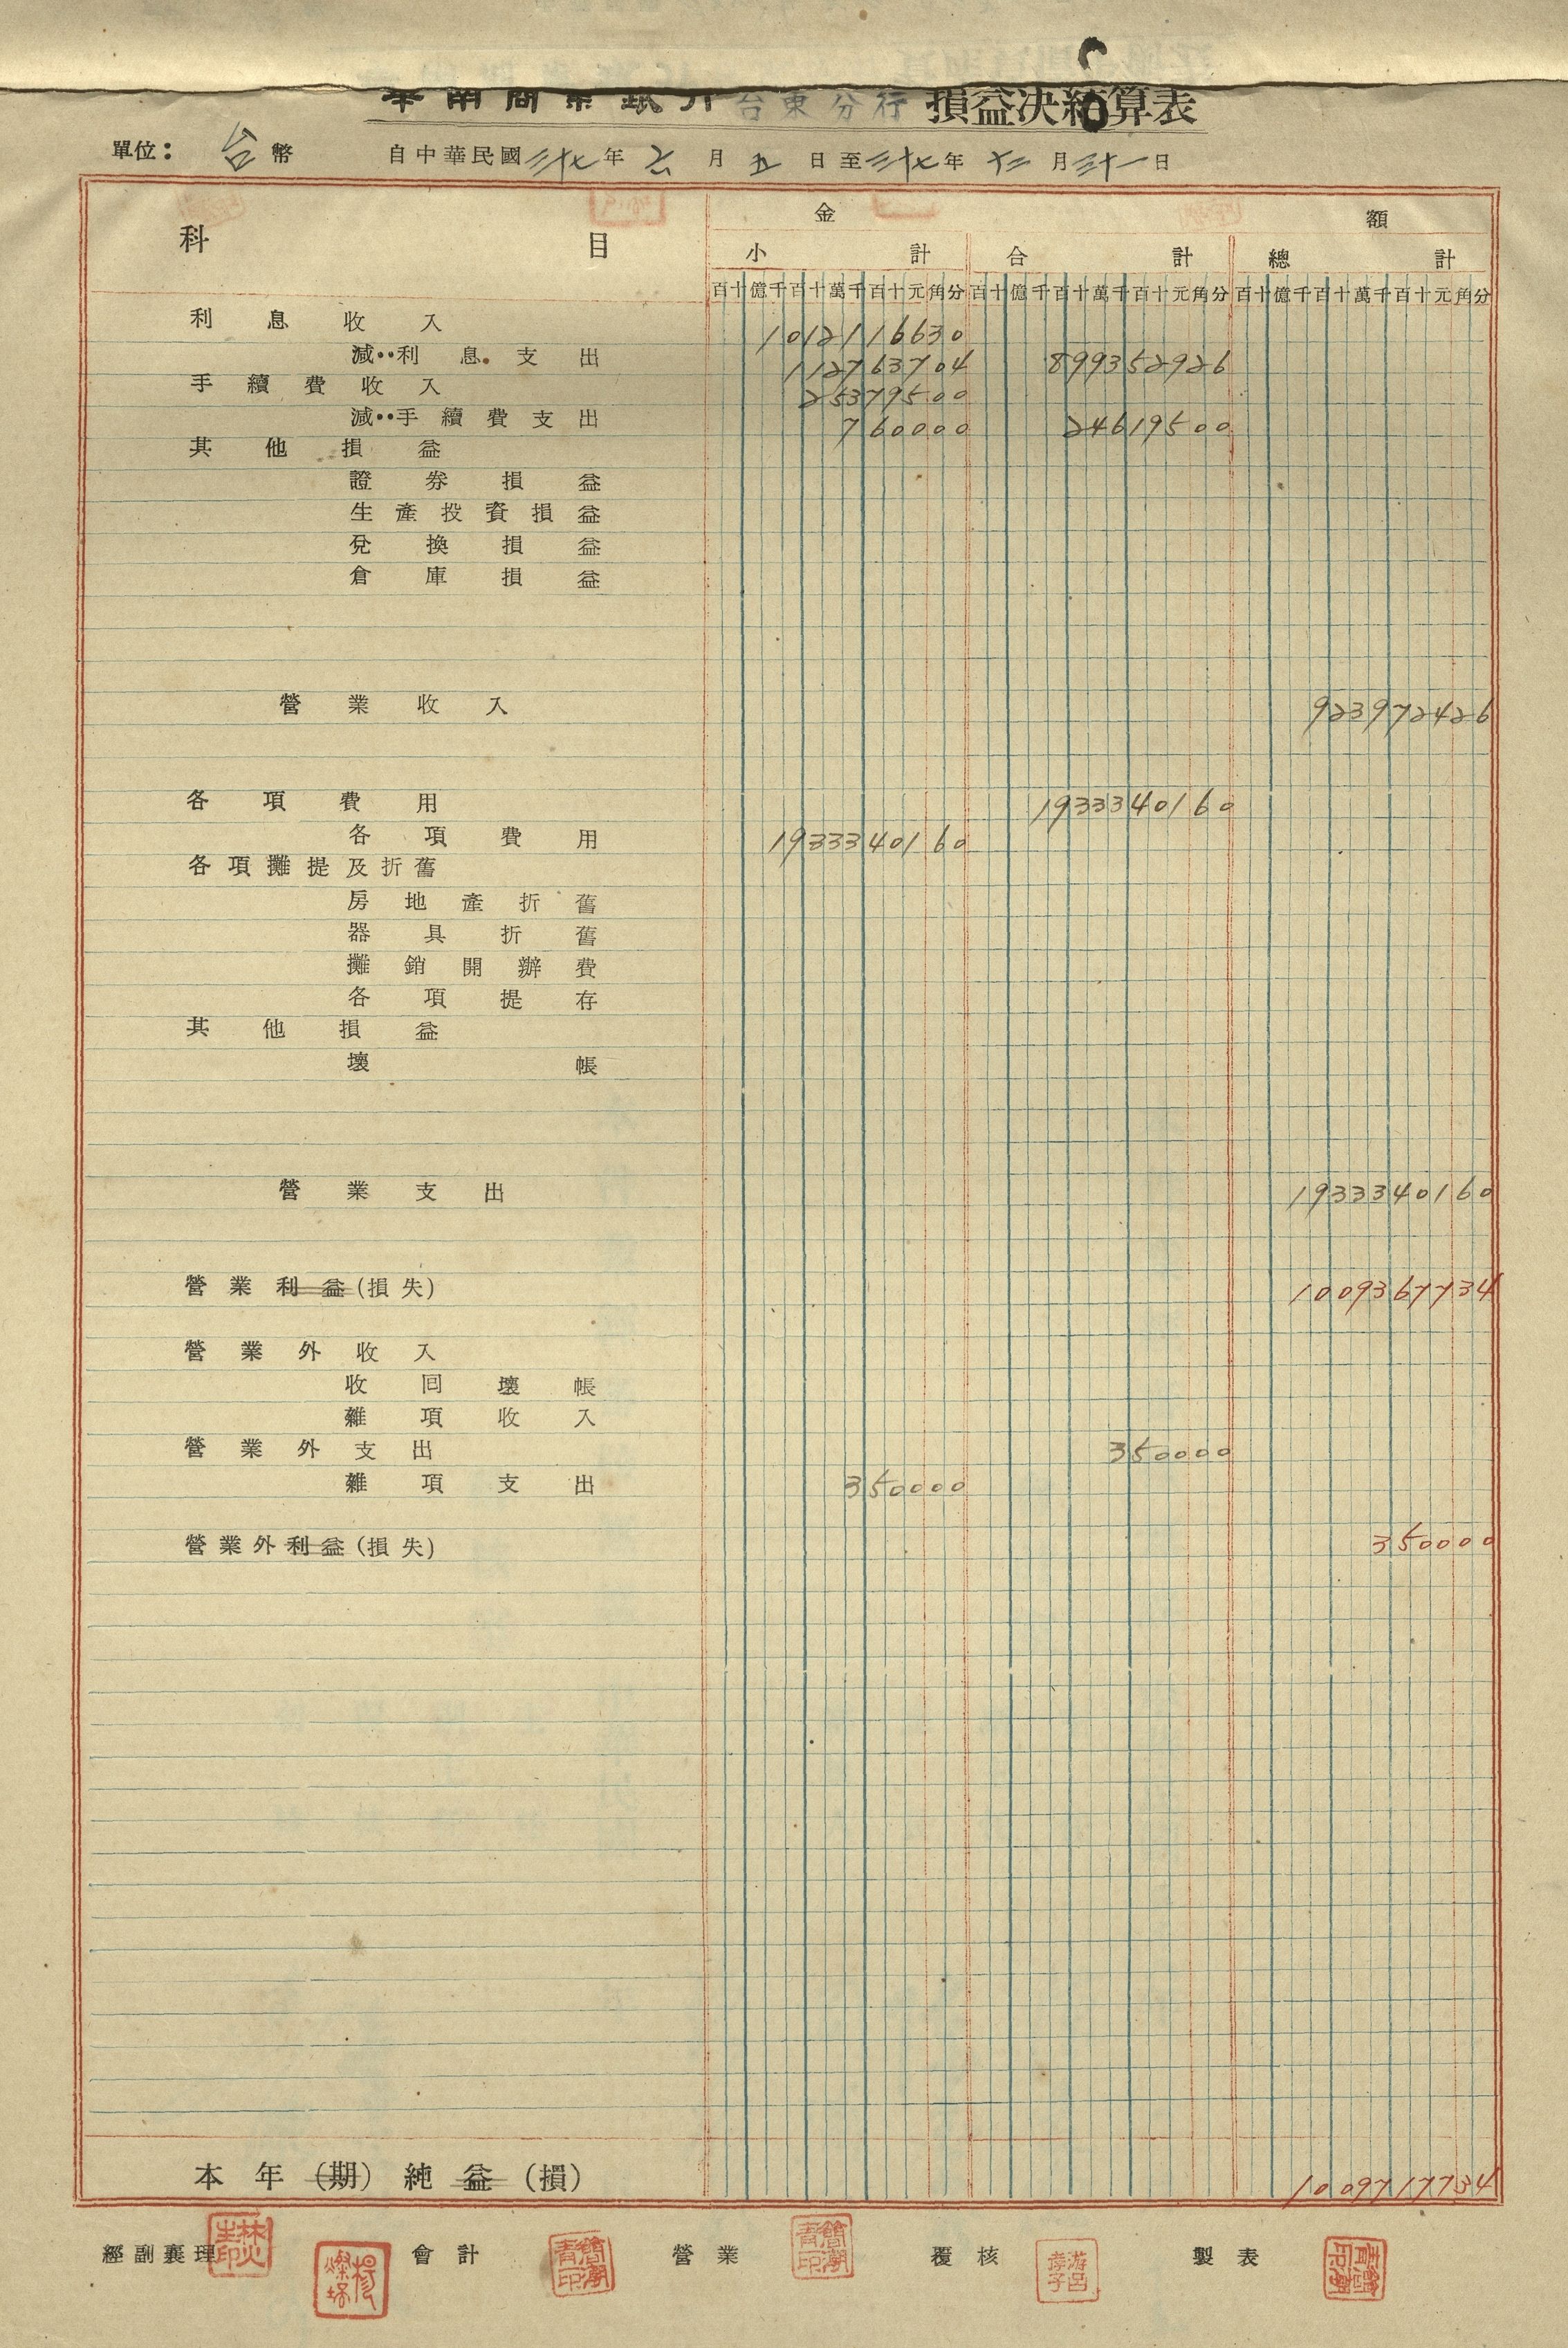 華南商業銀行台東分行 損益決結算表
單位：台幣 自中華民國三十七年六月五日至三十七年十二月三十一日
科目 金額
小計 合計 總計
百十億千百十萬千百十元角分 百十億千百十萬千百十元角分 百十億千百十萬千百十元角分
利息收入 1012116630
減：利息支出 112763704 899352926
手續費收入 25379500
減：手續費支出 760000 24619500
其他損益
證券損益
生產投資損益
兌換損益
倉庫損益
營業收入 923972426
各項費用 1933340160
各項費用 1933340160
各項攤提及折舊
房地產折舊
器具折舊
攤銷開辦費
各項提存
其他損益
壞帳
營業支出 1933340160
營業利益(損失) 1009367734
營業外收入
收回壞帳
雜項收入
營業外支出 350000
雜項支出 350000
營業外利益(損失) 350000
本年(期)純益(損) 1009717734
經副襄理 會計 營業 覆核 製表